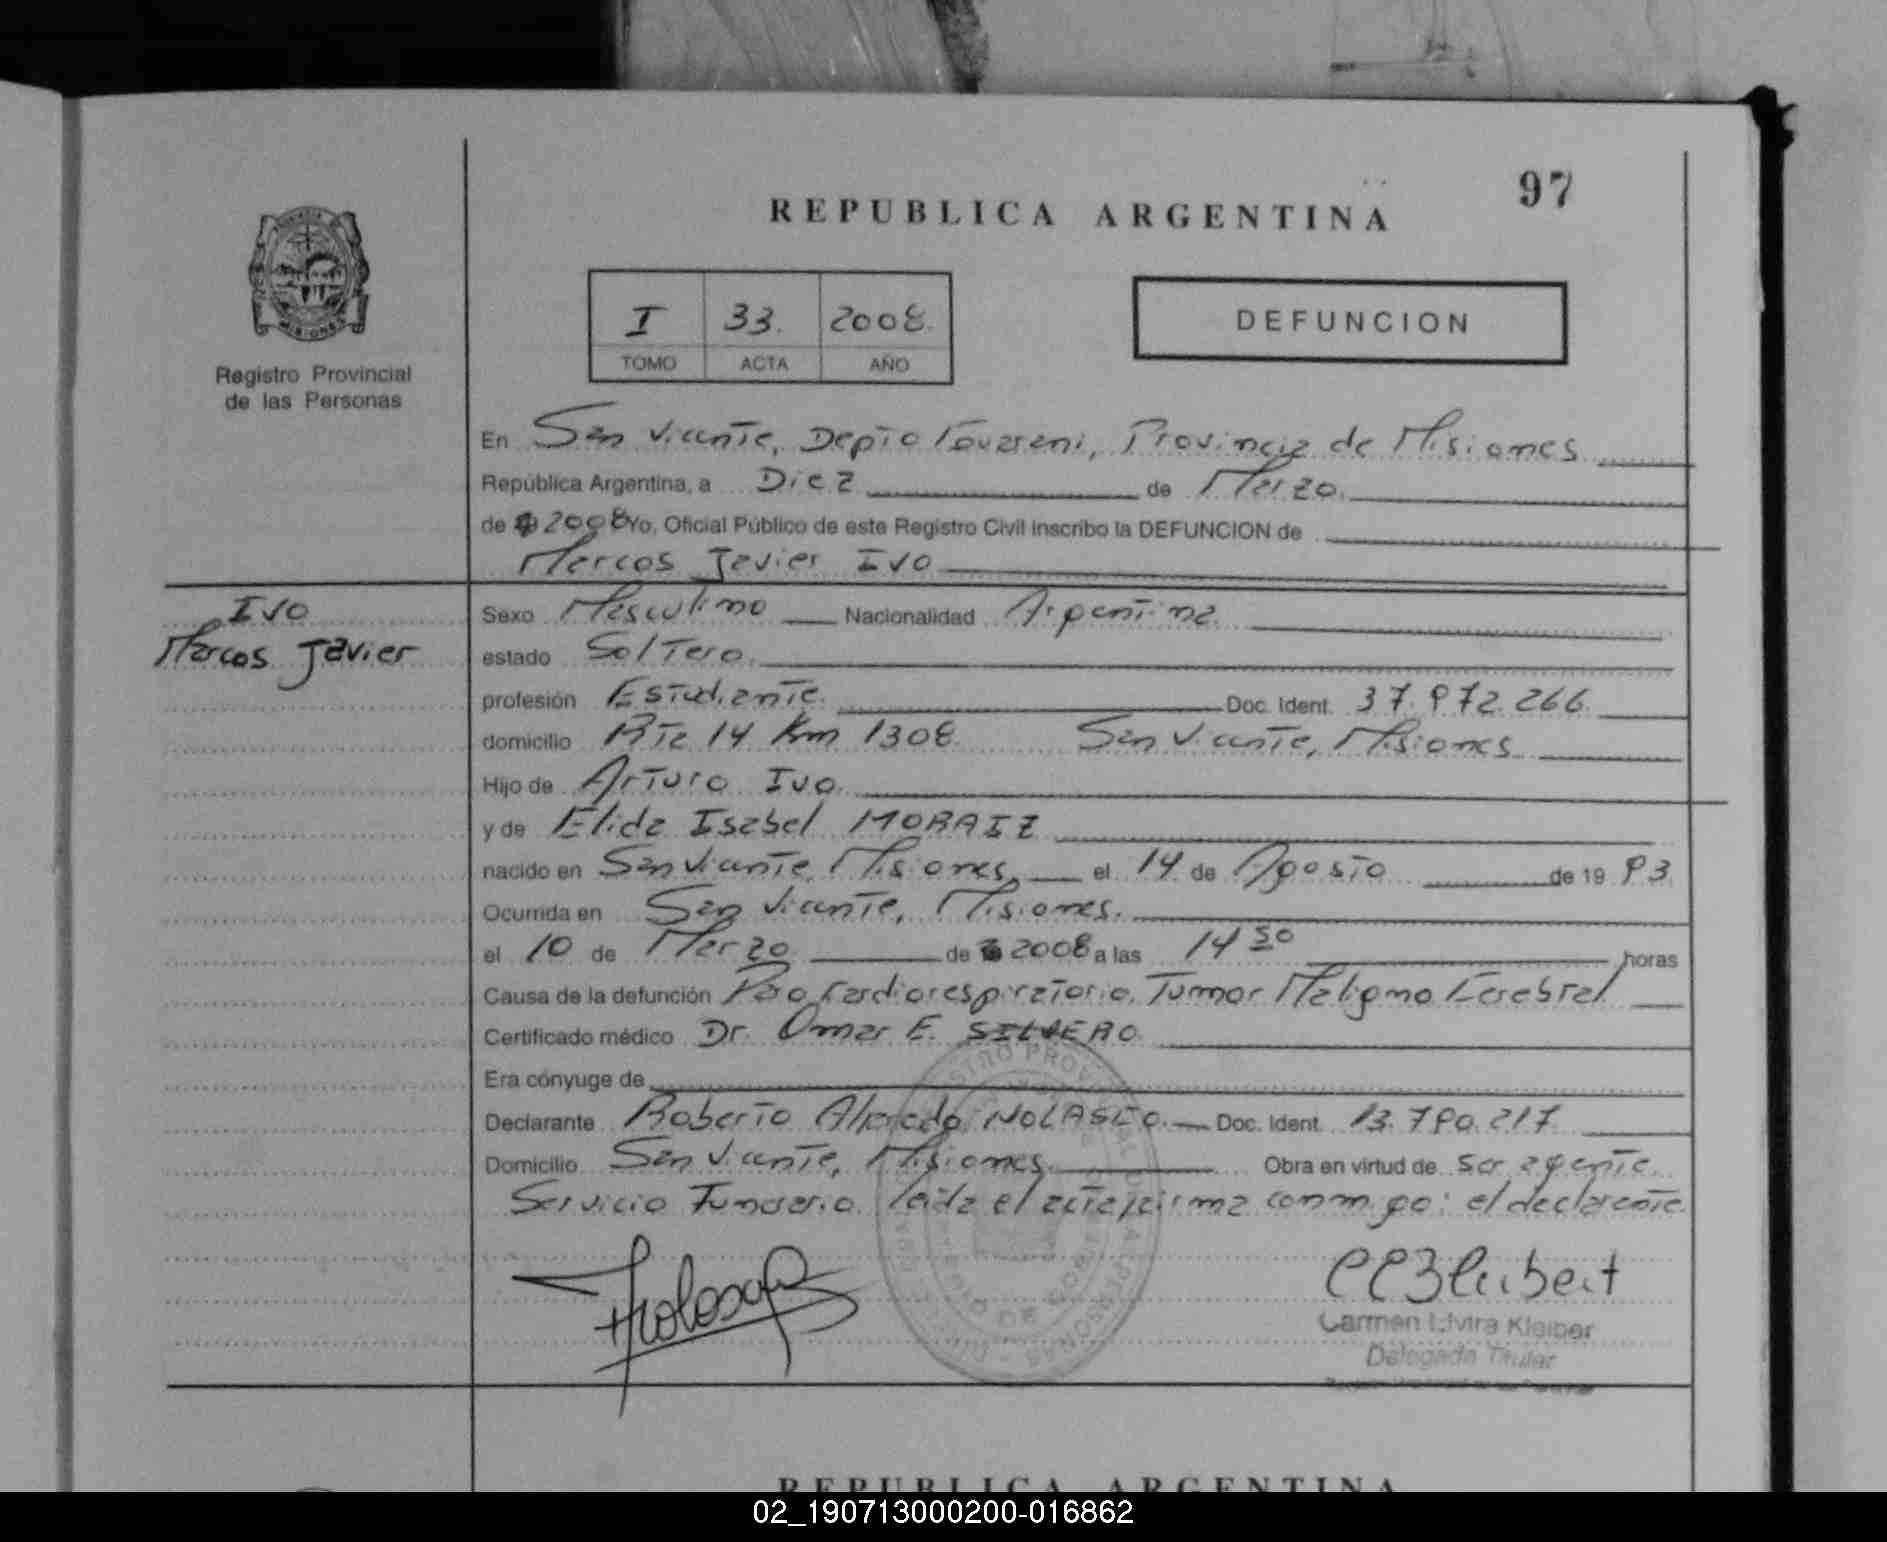 97
REPUBLICA ARGENTINA
MISIONES
Registro Provincial
de las Personas
I 33. 2008.
TOMO ACTA AÑO
DEFUNCION
En San Vicente, Depto Guarani, Provincia de Misiones
República Argentina, a Diez de Marzo.
de 2008 Yo, Oficial Público de este Registro Civil inscribo la DEFUNCION de
Marcos Javier IVO
IVO
Marcos Javier
Sexo Masculino Nacionalidad Argentina
estado Soltero.
profesión Estudiante. Doc. Ident. 37.972.266.
domicilio Rta 14 Km 1308. San Vicente, Misiones
Hijo de Arturo Ivo.
y de Elida Isabel MORAIZ
nacido en San Vicente, Misiones, el 14 de Agosto de 19 93
Ocurrida en San Vicente, Misiones.
el 10 de Marzo de 2008 a las 14 50 horas
Causa de la defunción Paro Cardiorespiratorio, Tumor Maligno Cerebral
Certificado médico Dr. Omar E. SILVERO
Era cónyuge de
Declarante Roberto Alfredo NOLASCO. Doc. Ident. 13.790.217
Domicilio San Vicente, Misiones Obra en virtud de ser agente
Servicio Funerario. Leida el acta, firma conmigo: el declarente
Carmen Elvira Kleiber
Delegada Titular
REPUBLICA ARGENTINA
02_190713000200-016862